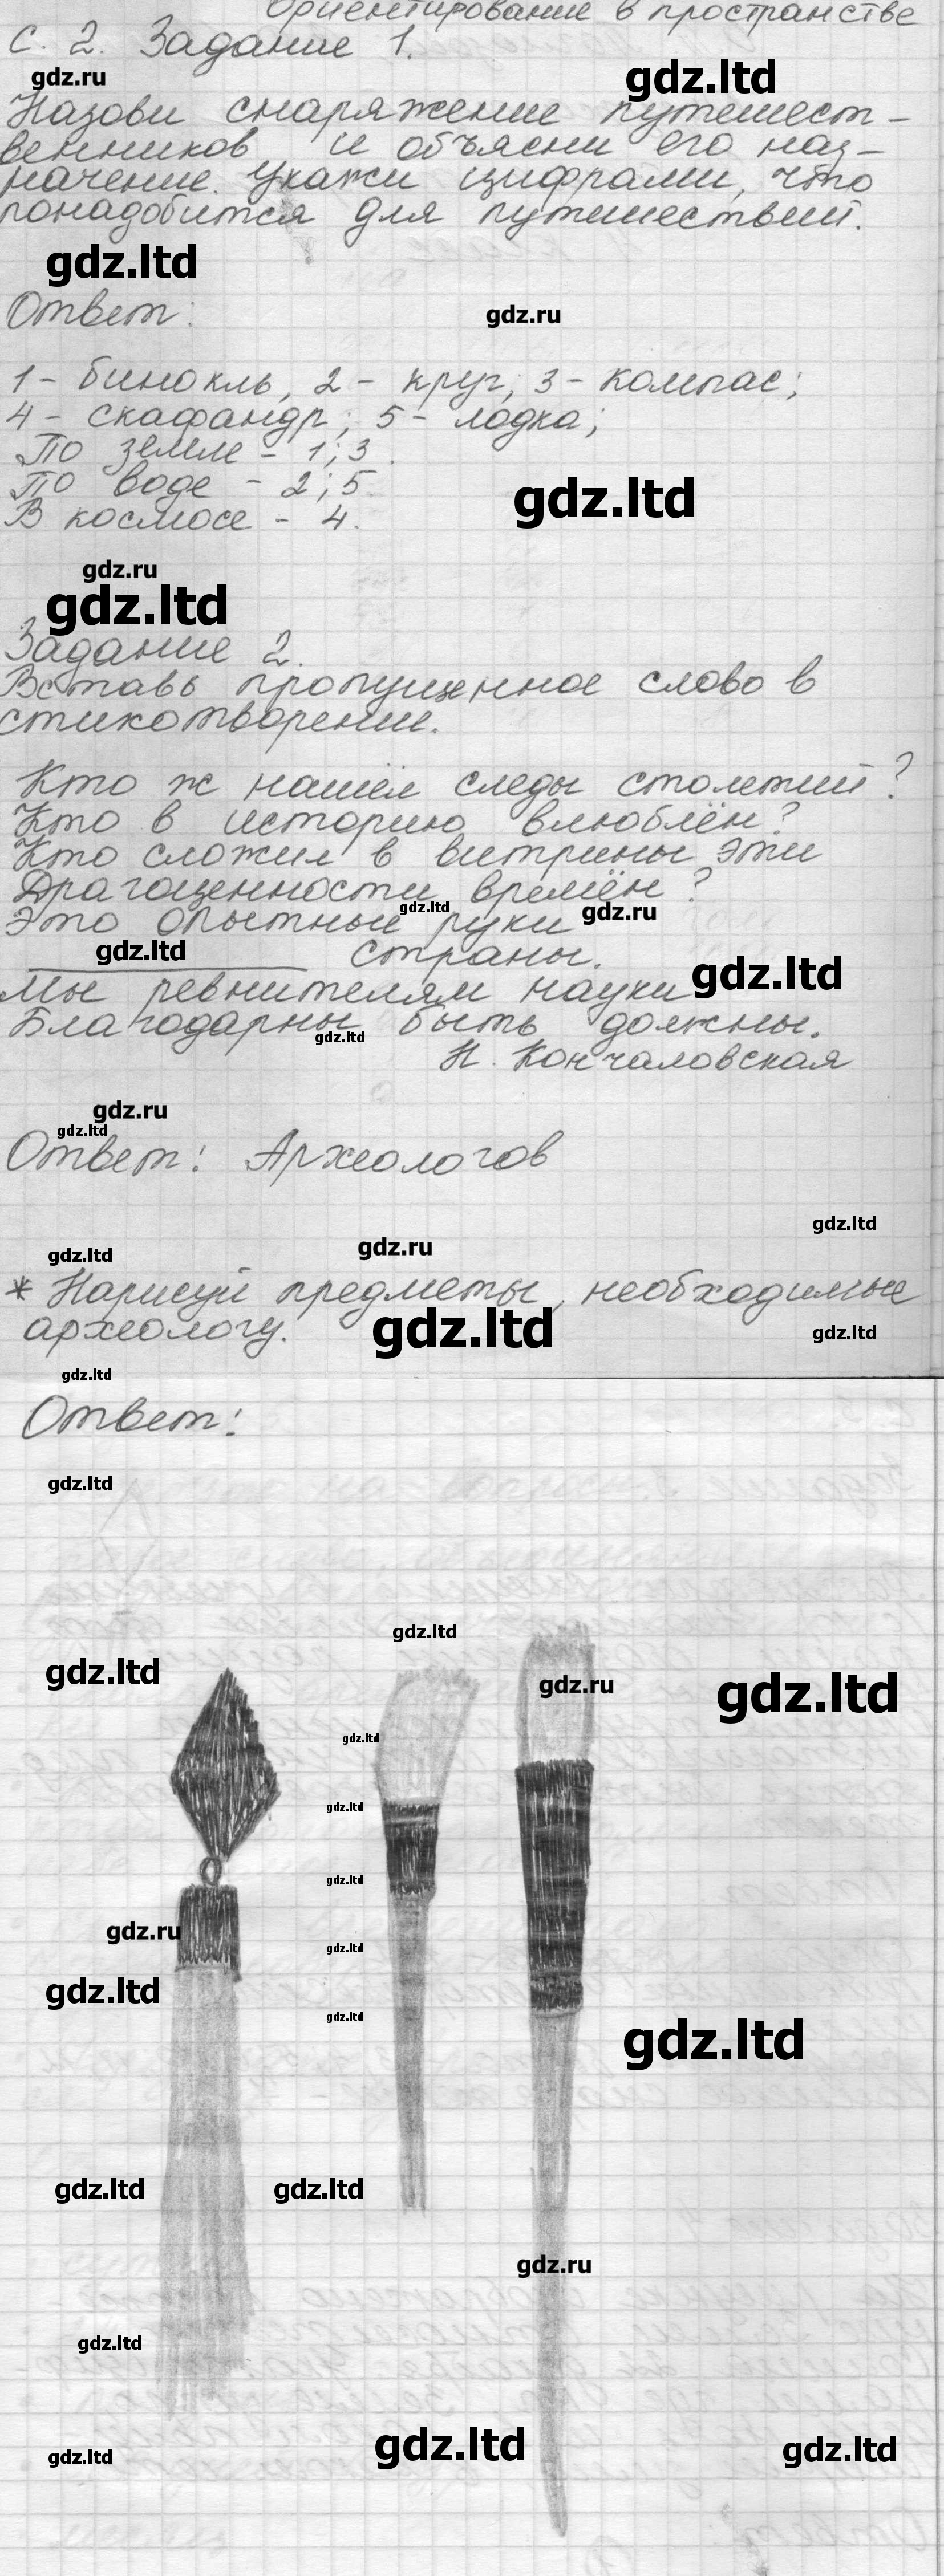 Ориентирование в пространстве
с. 2. Задание 1.
gdz.ru
gdz.ltd
Назови снаряжение путешест-
венников и объясни его наз-
начение. Укажи цифрами, что
понадобится для путешествий.
gdz.ltd
Ответ:
gdz.ru
1 - бинокль, 2 - круг; 3 - компас;
4 - скафандр; 5 - лодка;
По земле - 1; 3.
По воде - 2; 5.
В космосе - 4.
gdz.ltd
gdz.ru
gdz.ltd
Задание 2.
Вставь пропущенное слово в
стихотворении.
Кто ж нашёл следы столетий?
Кто в историю влюблён?
Кто сложил в витрины эти
Драгоценности времён?
gdz.ltd
gdz.ru
Это опытные руки
gdz.ltd
____________ страны.
gdz.ltd
Мы ревнителям науки
Благодарны быть должны.
gdz.ltd
Н. Кончаловская
gdz.ru
gdz.ltd
Ответ: Археологов
gdz.ltd
gdz.ru
gdz.ltd
* Нарисуй предметы, необходимые
археологу.
gdz.ltd
gdz.ltd
gdz.ltd
Ответ:
gdz.ltd
gdz.ltd
gdz.ltd
gdz.ru
gdz.ltd
gdz.ltd
gdz.ltd
gdz.ltd
gdz.ru
gdz.ltd
gdz.ltd
gdz.ltd
gdz.ltd
gdz.ltd
gdz.ltd
gdz.ru
gdz.ltd
gdz.ltd
gdz.ltd
gdz.ltd